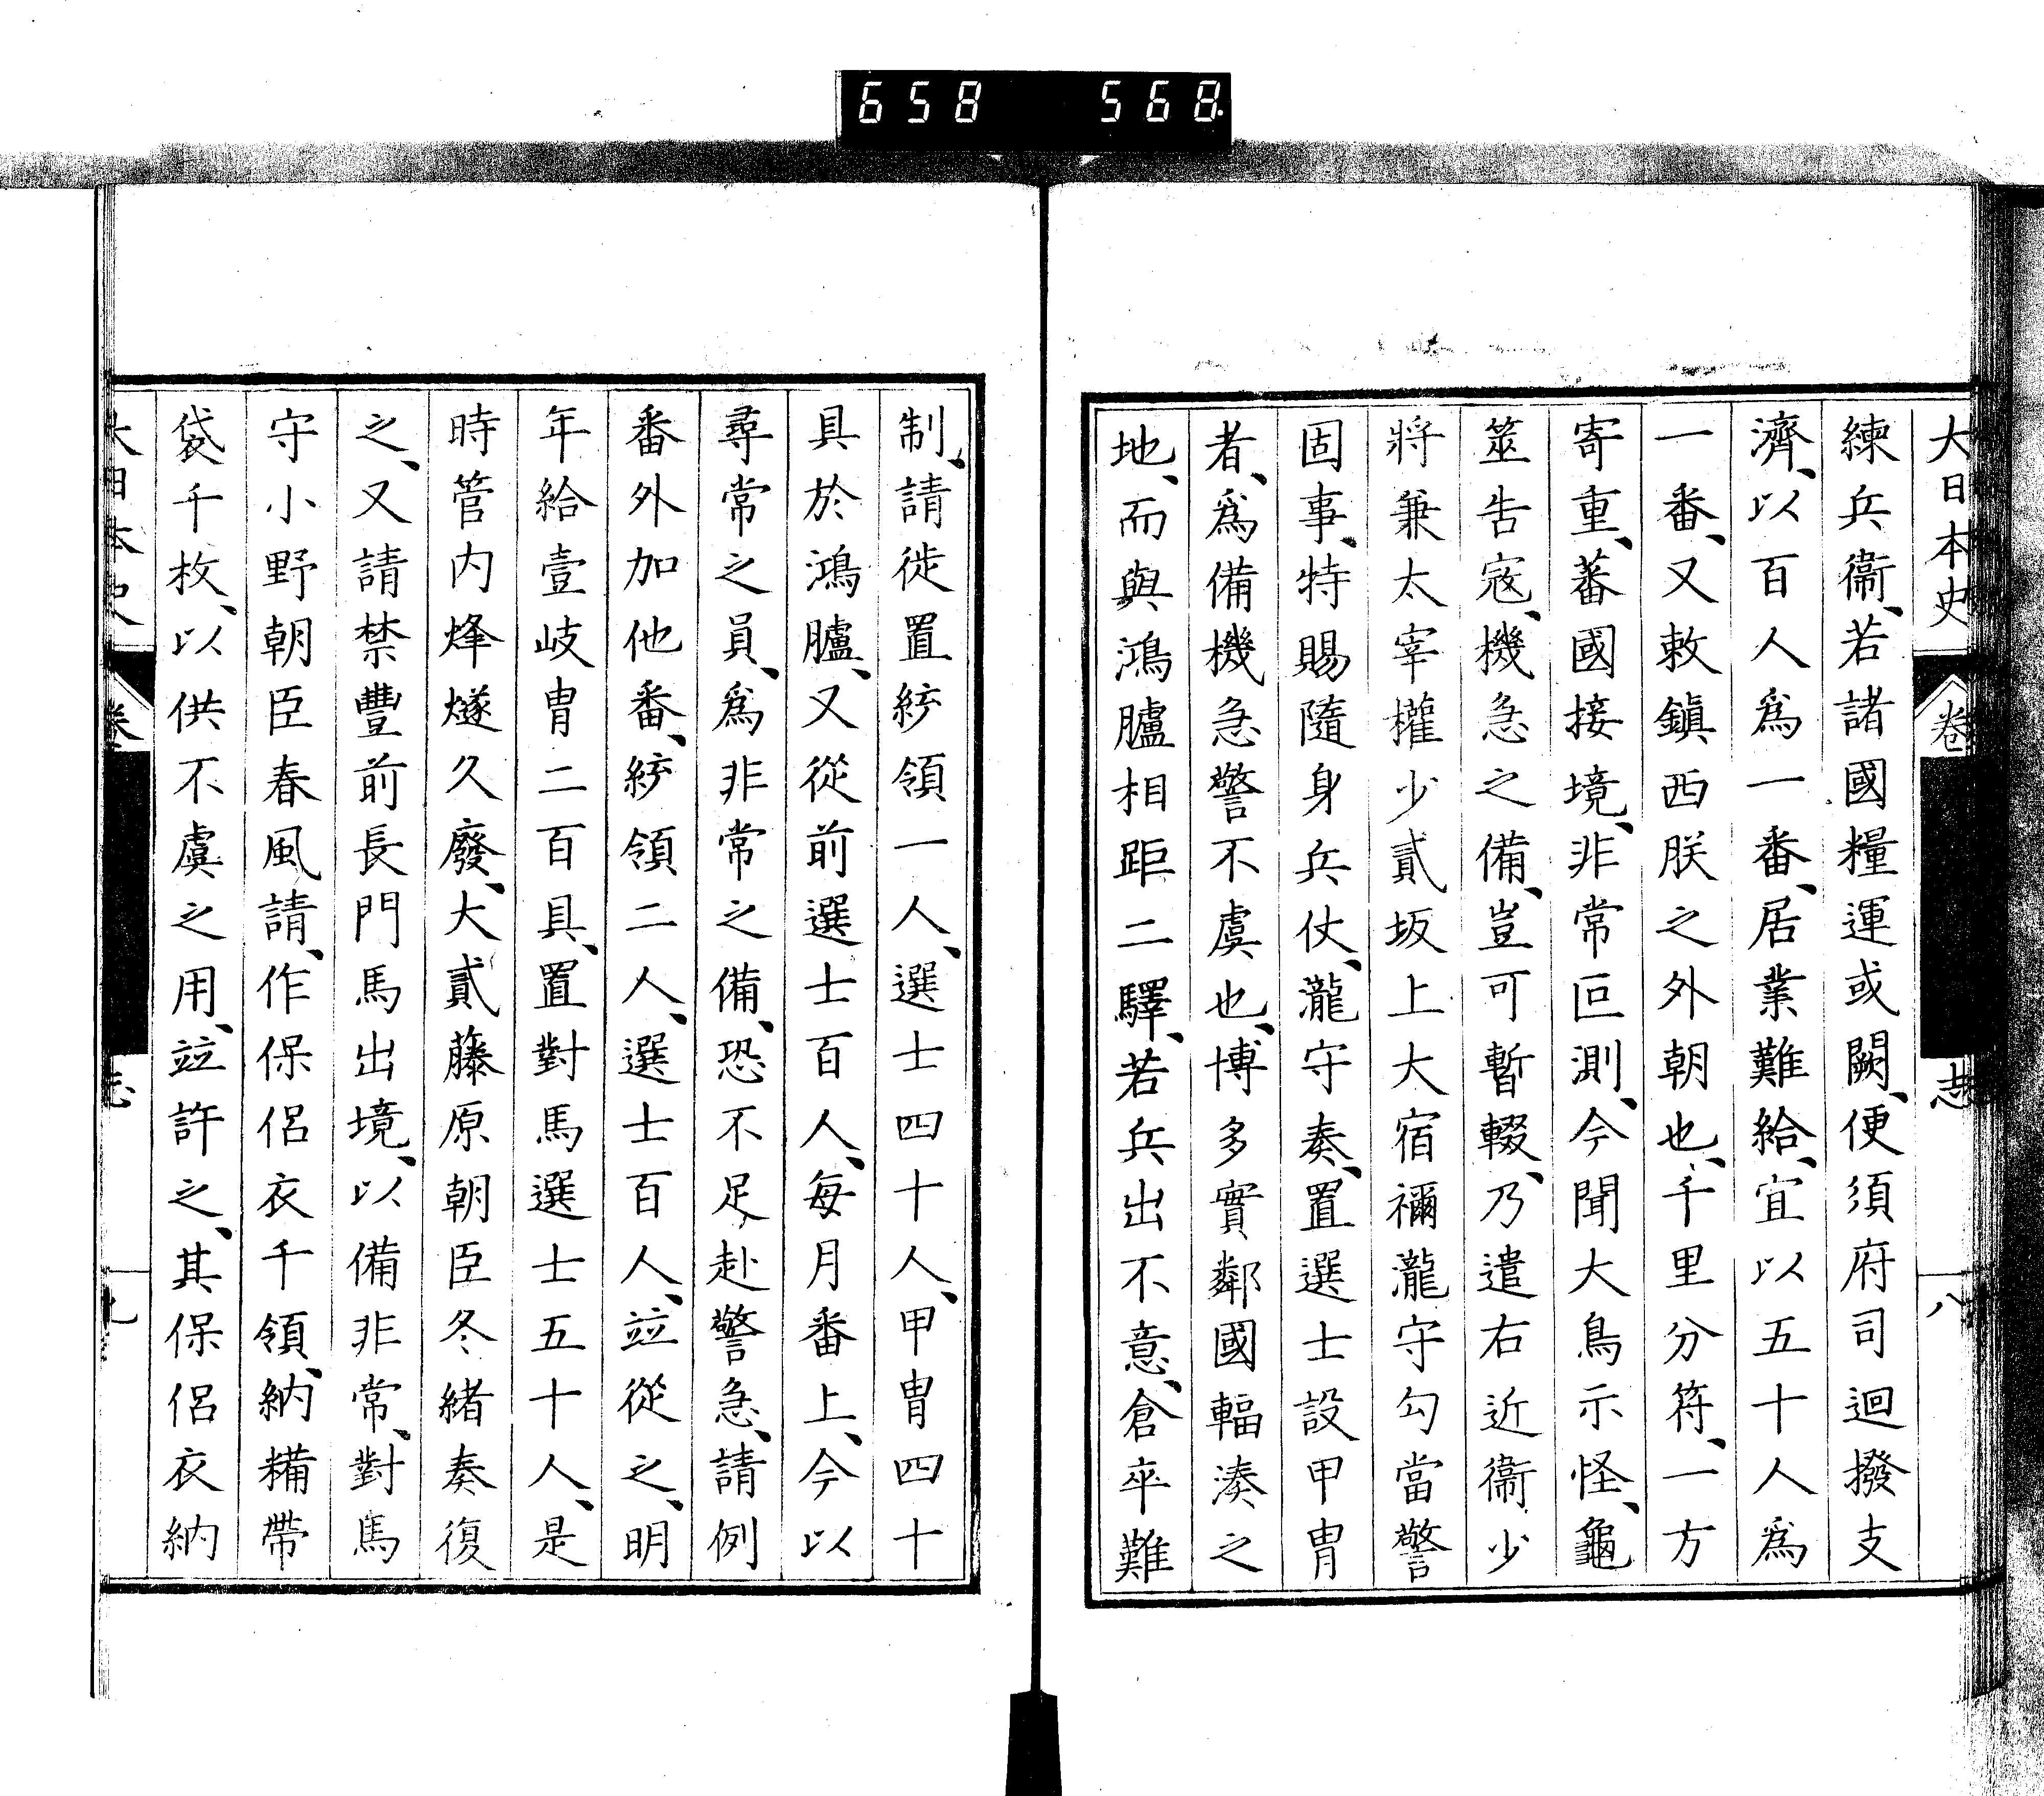 658 568
大日本史 卷 志 八
練兵衞、若諸國糧運或闕、便須府司迴撥支
濟、以百人爲一番、居業難給、宜以五十人爲
一番、又敕鎭西朕之外朝也、千里分符、一方
寄重、蕃國接境、非常叵測、今聞大鳥示怪、龜
筮告寇、機急之備、豈可暫輟、乃遣右近衞少
將兼太宰權少貳坂上大宿禰瀧守勾當警
固事、特賜隨身兵仗、瀧守奏、置選士設甲冑
者、爲備機急警不虞也、博多實鄰國輻湊之
地、而與鴻臚相距二驛、若兵出不意、倉卒難
制、請徙置統領一人、選士四十人、甲冑四十
具於鴻臚、又從前選士百人、每月番上、今以
尋常之員、爲非常之備、恐不足赴警急、請例
番外加他番、統領二人、選士百人、竝從之、明
年給壹岐冑二百具、置對馬選士五十人、是
時管內烽燧久廢、大貳藤原朝臣冬緒奏復
之、又請禁豐前長門馬出境、以備非常、對馬
守小野朝臣春風請、作保侶衣千領、納糒帶
袋千枚、以供不虞之用、竝許之、其保侶衣納
大日本史 卷 志 九